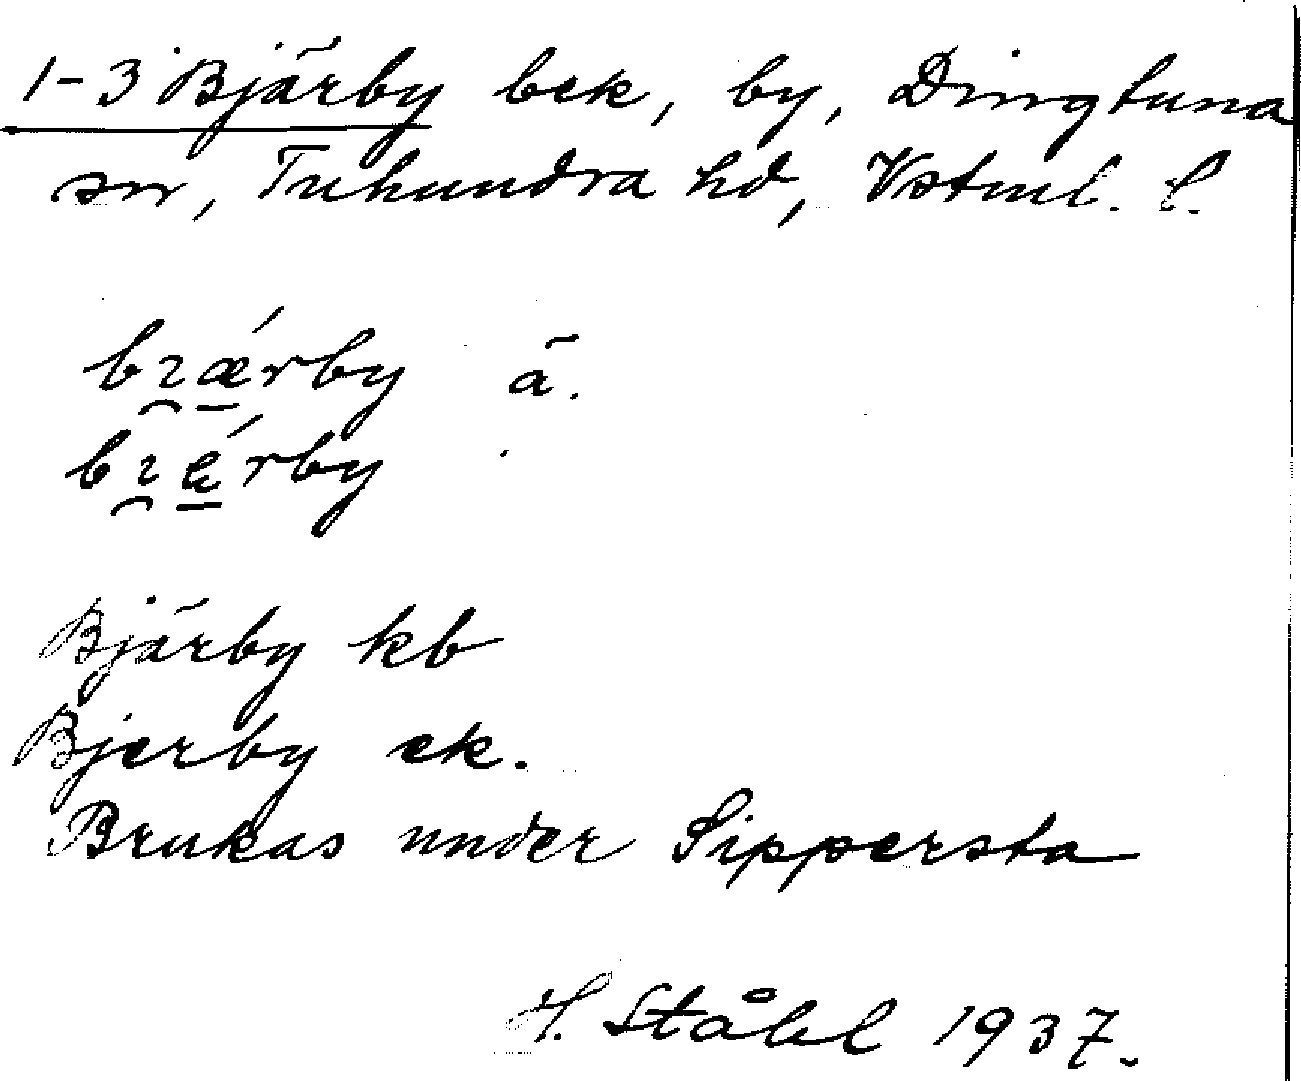 1-3 Bjärby bek, by, Dingtuna
sn, Tuhundra hd, Vstml. l.
bıǽrby ä.
bıę́rby
Bjärby kb
Bjerby ek.
Brukas under Sippersta
H. Ståhl 1937.